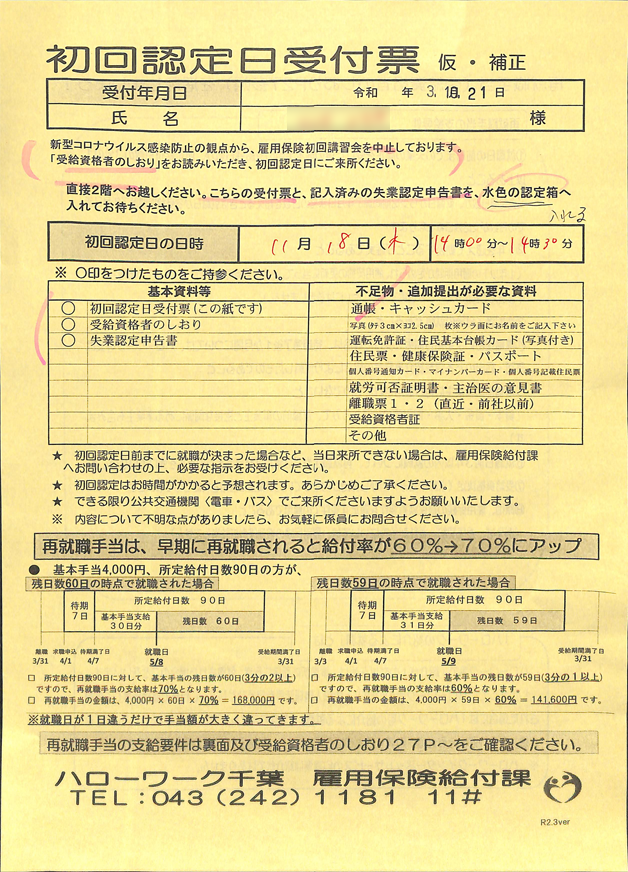 初回認定日受付票 仮・補正
受付年月日 令和 年 3.10.21 日
氏 名 様
新型コロナウイルス感染防止の観点から、雇用保険初回講習会を中止しております。
「受給資格者のしおり」をお読みいただき、初回認定日にご来所ください。
直接2階へお越しください。こちらの受付票と、記入済みの失業認定申告書を、水色の認定箱へ
入れてお待ちください。
入れる
初回認定日の日時 11 月 18 日 (木) 14 時 00 分~ 14 時 30 分
※ 〇印をつけたものをご持参ください。
基本資料等 不足物・追加提出が必要な資料
〇 初回認定日受付票(この紙です) 通帳・キャッシュカード
〇 受給資格者のしおり 写真(タテ3cm×ヨコ2.5cm) 枚※ウラ面にお名前をご記入下さい
〇 失業認定申告書 運転免許証・住民基本台帳カード(写真付き)
住民票・健康保険証・パスポート
個人番号通知カード・マイナンバーカード・個人番号記載住民票
就労可否証明書・主治医の意見書
離職票1・2(直近・前社以前)
受給資格者証
その他
★ 初回認定日前までに就職が決まった場合など、当日来所できない場合は、雇用保険給付課
へお問い合わせの上、必要な指示をお受けください。
★ 初回認定はお時間がかかると予想されます。あらかじめご了承ください。
★ できる限り公共交通機関〈電車・バス〉でご来所くださいますようお願いいたします。
※ 内容について不明な点がありましたら、お気軽に係員にお問合せください。
再就職手当は、早期に再就職されると給付率が60%→70%にアップ
● 基本手当4,000円、所定給付日数90日の方が、
残日数60日の時点で就職された場合 残日数59日の時点で就職された場合
待期 7日 所定給付日数 90日 待期 7日 所定給付日数 90日
基本手当支給 30日分 残日数 60日 基本手当支給 31日分 残日数 59日
離職 求職申込 待期満了日 就職日 受給期間満了日 離職 求職申込 待期満了日 就職日 受給期間満了日
3/31 4/1 4/7 5/8 3/31 3/31 4/1 4/7 5/9 3/31
□ 所定給付日数90日に対して、基本手当の残日数が60日(3分の2以上)
ですので、再就職手当の支給率は70%となります。
□ 再就職手当の金額は、4,000円×60日×70%=168,000円 です。
□ 所定給付日数90日に対して、基本手当の残日数が59日(3分の1以上)
ですので、再就職手当の支給率は60%となります。
□ 再就職手当の金額は、4,000円×59日×60%=141,600円 です。
※就職日が1日違うだけで手当額が大きく違ってきます。
再就職手当の支給要件は裏面及び受給資格者のしおり27P~をご確認ください。
ハローワーク千葉 雇用保険給付課
TEL:043(242)1181 11#
R2.3ver